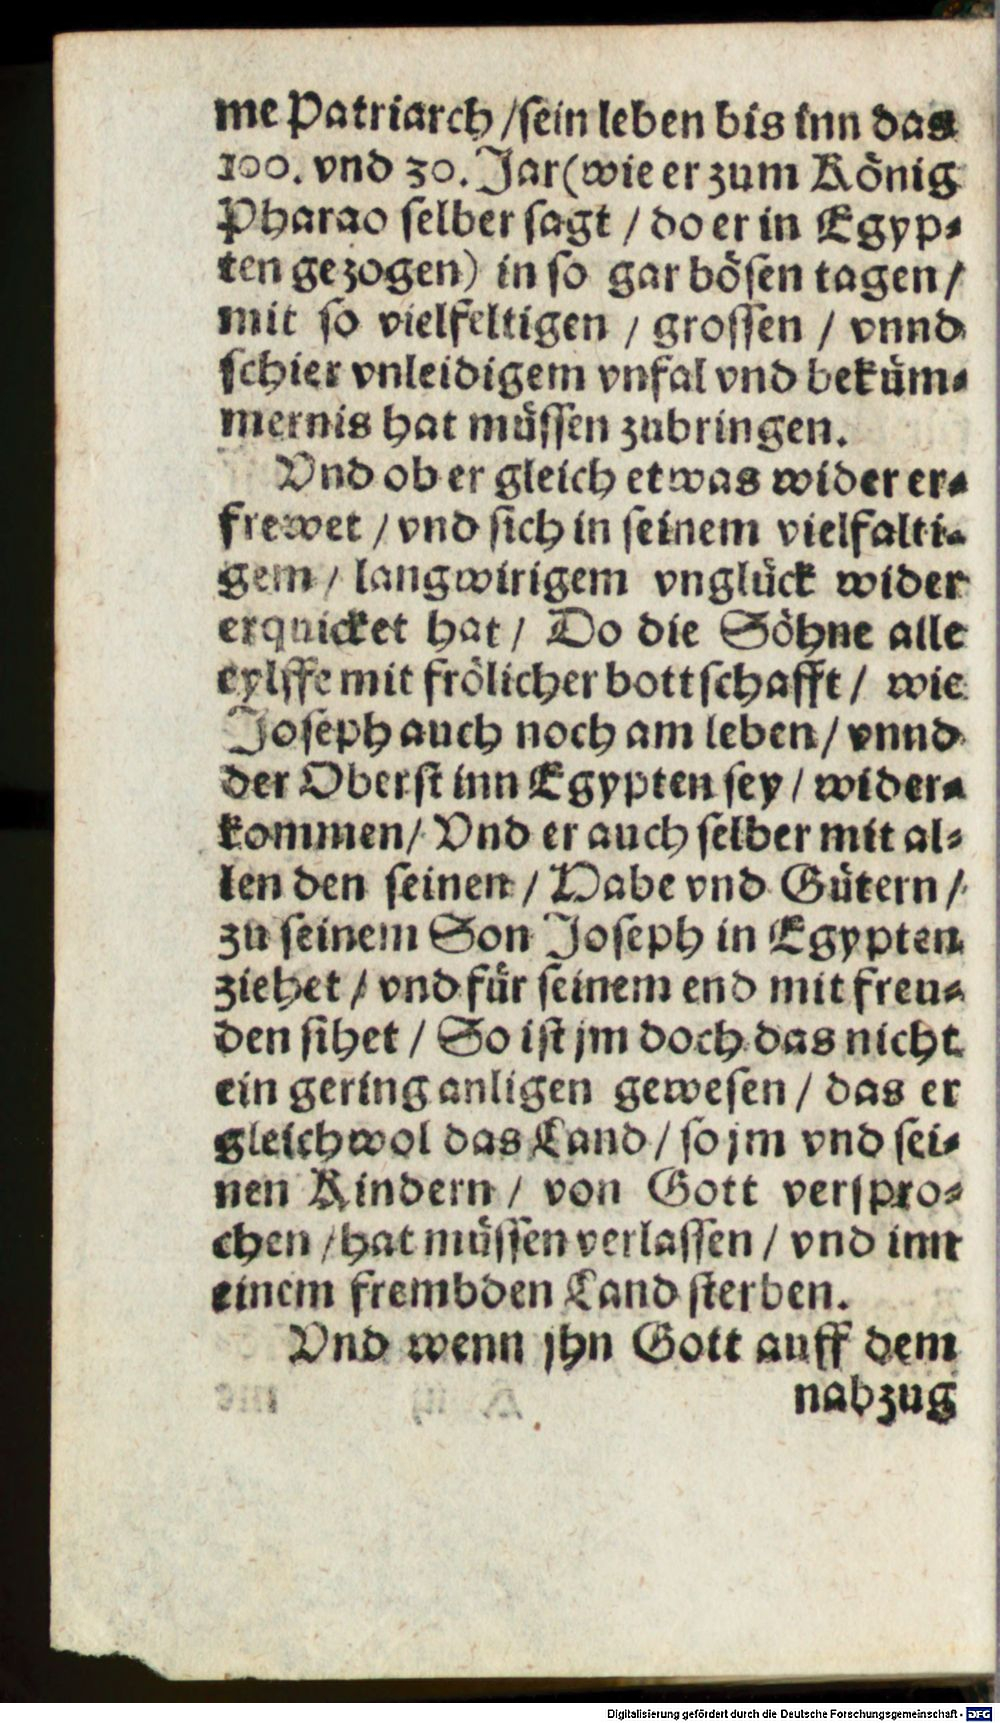 me Patriarch / sein leben bis inn das
100. vnd 30. Jar (wie er zum König
Pharao selber sagt / do er in Egyp⸗
ten gezogen) in so gar bösen tagen /
mit so vielfeltigen / grossen / vnnd
schier vnleidigem vnfal vnd beküm⸗
mernis hat müssen zubringen.
Vnd ob er gleich etwas wider er⸗
frewet / vnd sich in seinem vielfalti⸗
gem / langwirigem vnglück wider
erquicket hat / Do die Söhne alle
eylffe mit frölicher bottschafft / wie
Joseph auch noch am leben / vnnd
der Oberst inn Egypten sey / wider⸗
kommen / Vnd er auch selber mit al⸗
len den seinen / Habe vnd Gütern /
zu seinem Son Joseph in Egypten
ziehet / vnd für seinem end mit freu⸗
den sihet / So ist jm doch das nicht
ein gering anligen gewesen / das er
gleichwol das Land / so jm vnd sei⸗
nen Kindern / von Gott verspro⸗
chen / hat müssen verlassen / vnd inn
einem frembden Land sterben.
Vnd wenn jhn Gott auff dem
nabzug
Digitalisierung gefördert durch die Deutsche Forschungsgemeinschaft - DFG